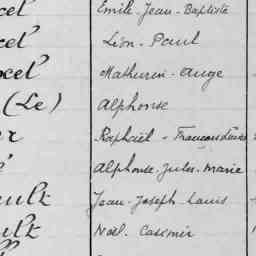 cel Emile-Jean-Baptiste
cel Léon-Paul
ocel Mathurin-Ange
(Le) Alphonse
Raphaël-
é Alphonse-Jules-Marie
ault Jean-Joseph-Louis
ult Noël-Casimir